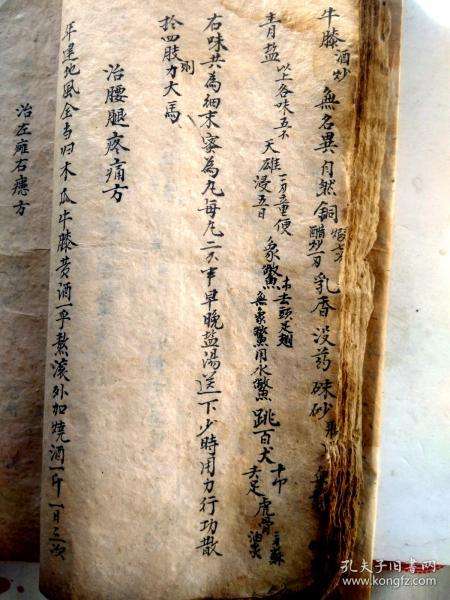 牛膝酒炒 無名異 自然銅 醋炒一刀 乳香 沒药 硃砂
青盐 以上各味五不 天雄一刀童便浸五日 象鱉 去頭足翅 無象鱉用水鱉 跳百犬 去足 虎骨
右味共為細末蜜為丸每丸二不半早晚盐湯送下少時用力行功散
於四肢則力大焉
治腰腿疼痛方
年建地風全当归木瓜牛膝黄酒一乎熬滚外加燒酒一斤一日三次
治左癱右瘓方
孔夫子旧书网
www.kongfz.com